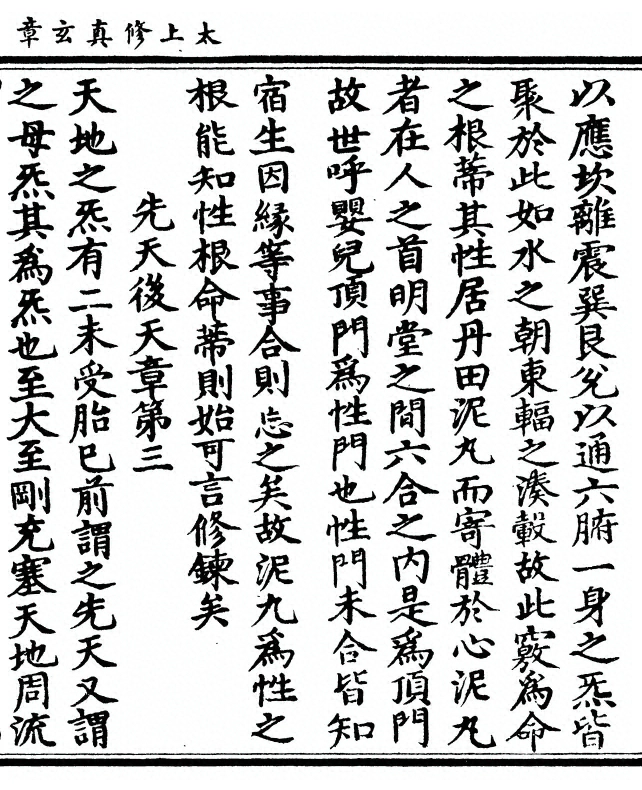 太上修真玄章
以應坎離震巽艮兊以通六腑一身之炁皆
聚於此如水之朝東輻之湊轂故此竅爲命
之根蒂其性居丹田泥丸而寄體於心泥丸
者在人之首明堂之間六合之内是爲頂門
故世呼嬰兒頂門爲性門也性門未合皆知
宿生因緣等事合則忘之矣故泥丸爲性之
根能知性根命蒂則始可言修鍊矣
先天後天章第三
天地之炁有二未受胎已前謂之先天又謂
之母炁其爲炁也至大至剛充塞天地周流